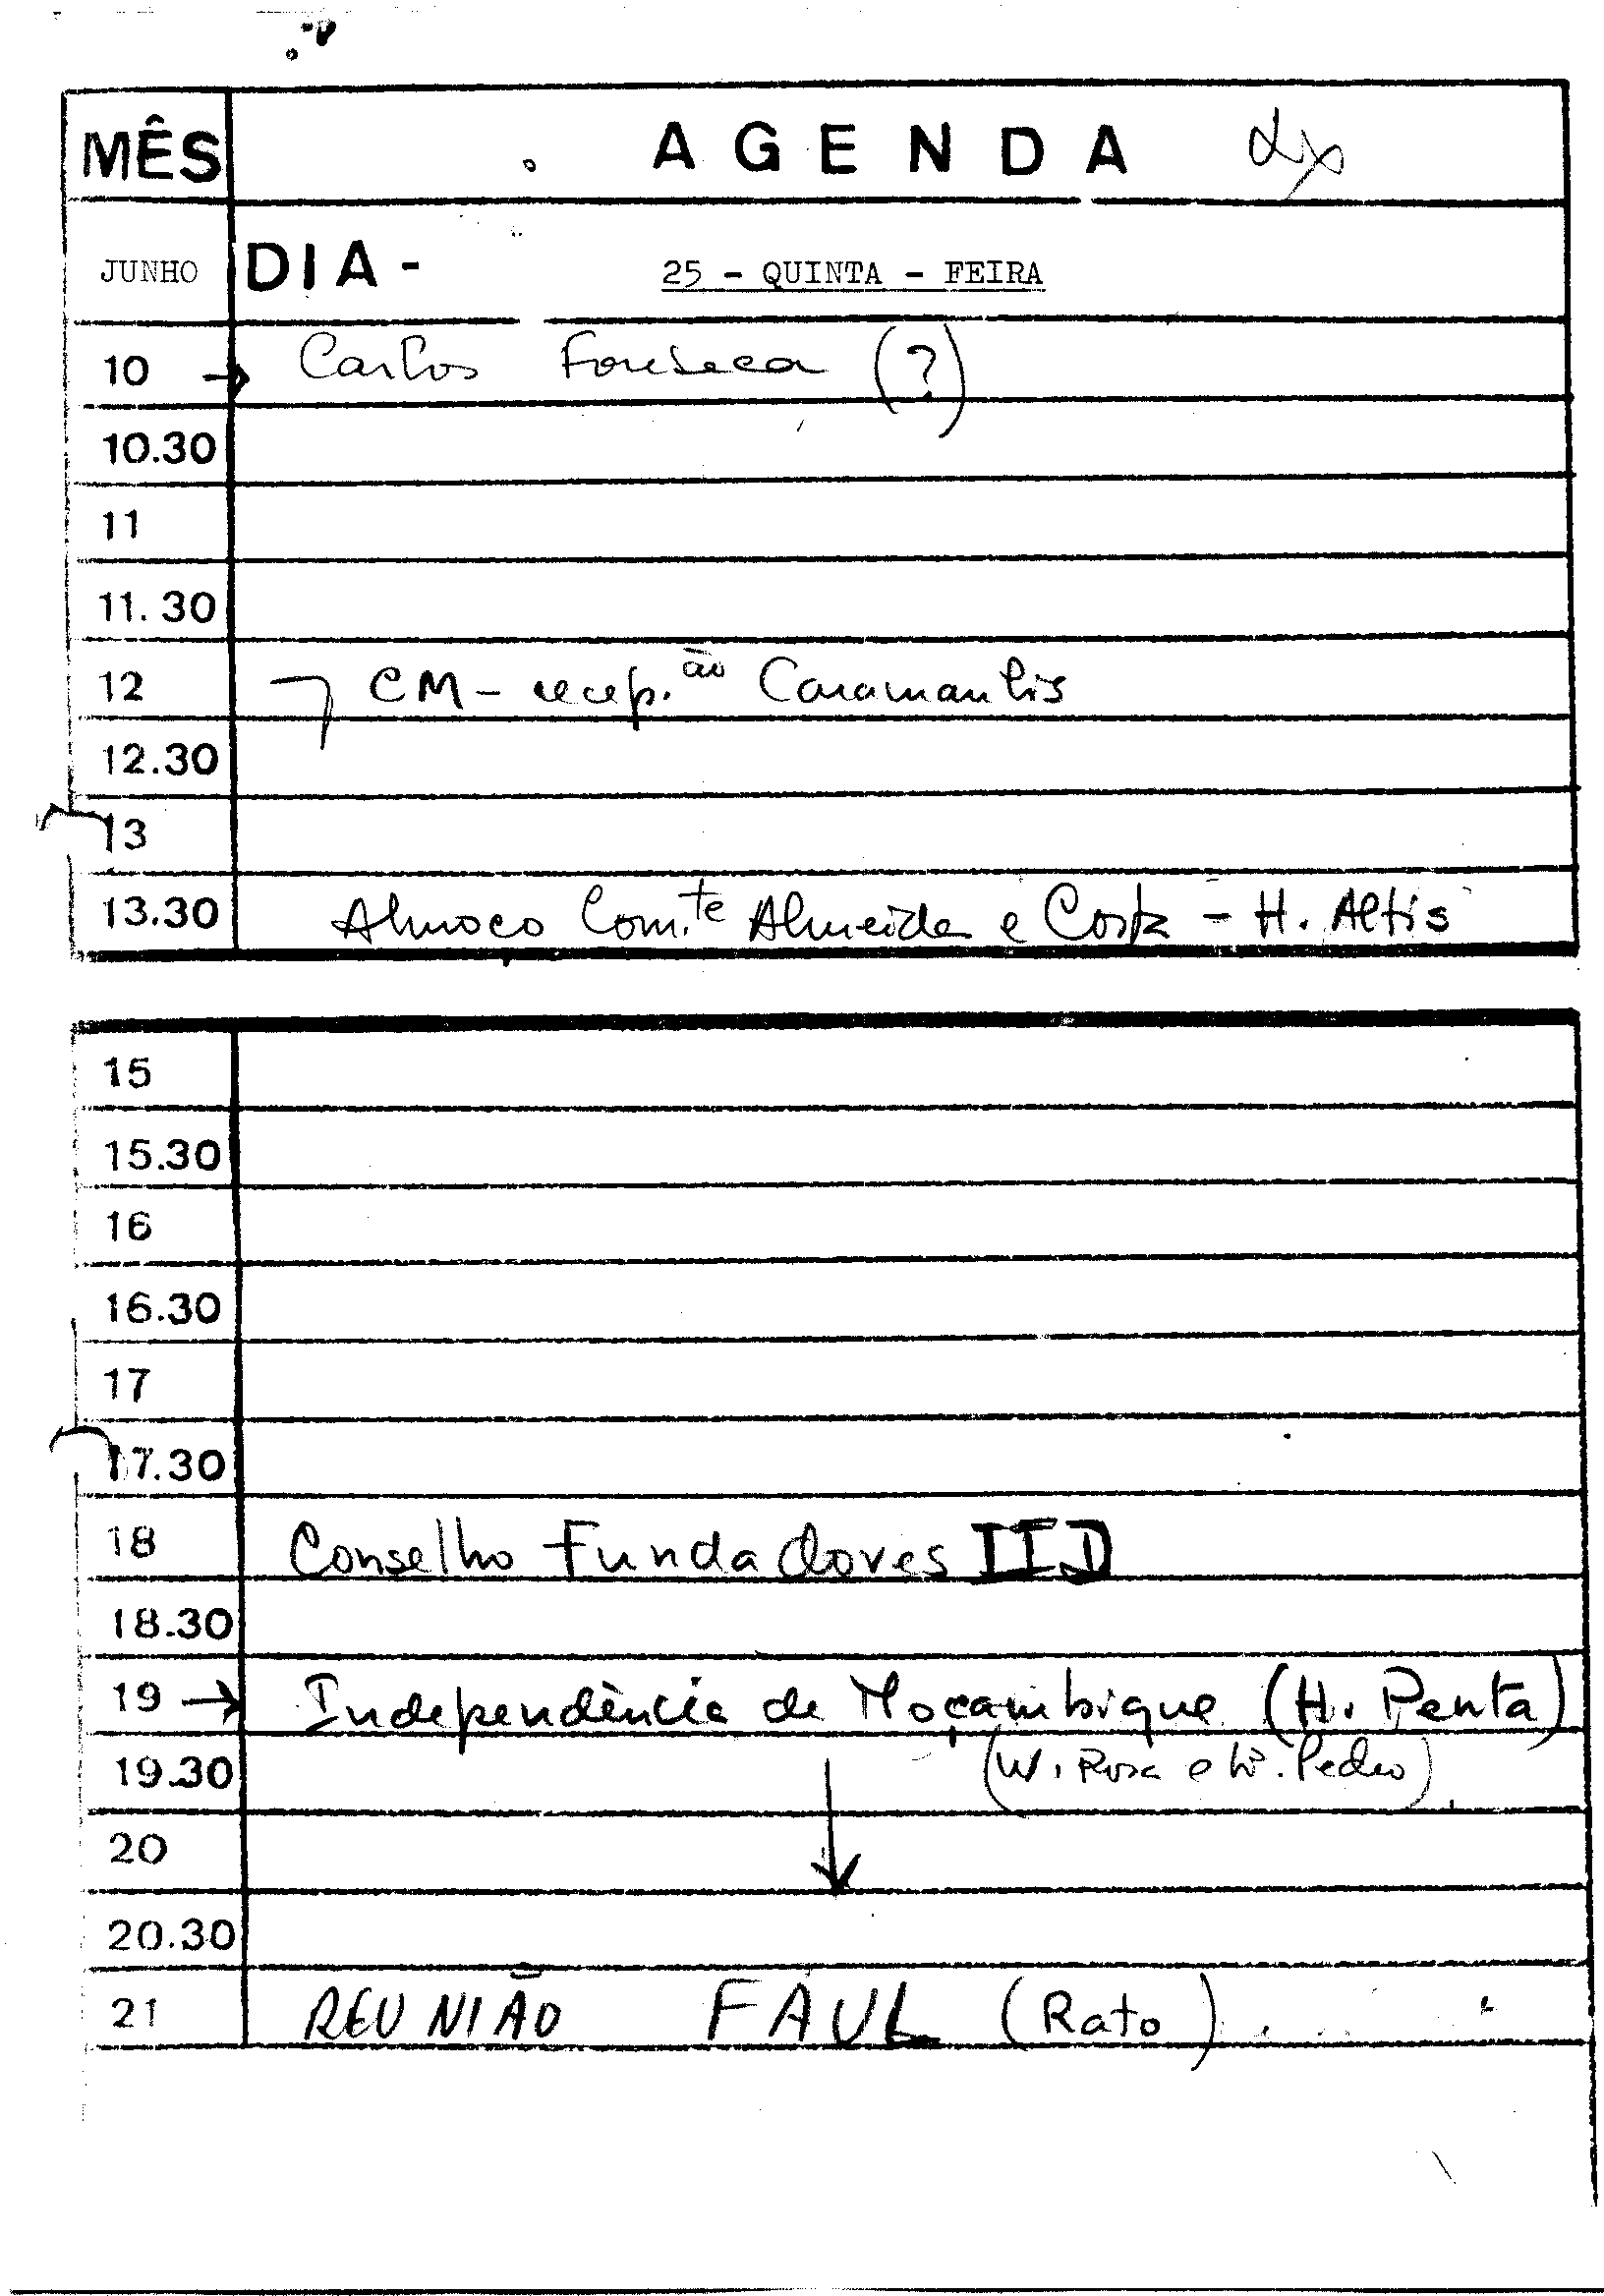 MÊS AGENDA Lx
JUNHO DIA - 25 - QUINTA - FEIRA
10 → Carlos Fonseca (?)
10.30
11
11.30
12 CM - recep.ão Caramanlis
12.30
13
13.30 Almoço Com.te Almeida e Costa - H. Altis
15
15.30
16
16.30
17
17.30
18 Conselho Fundadores IED
18.30
19 → Independência de Moçambique (H. Penta)
19.30 (W. Rosa e W. Pedro)
20
20.30
21 REUNIÃO FAUL (Rato)